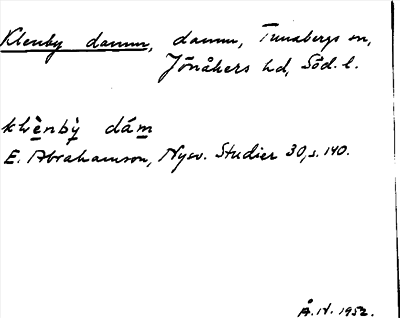 Klenby damm, damm, Tunabergs sn,
Jönåkers hd, Söd. l.
klènbỳ dám
E. Abrahamson, Nysv. Studier 30, s. 140.
Å. N. 1952.